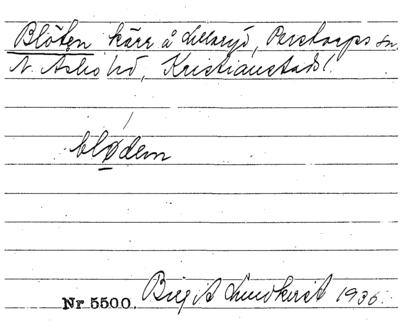 Blöten kärr å Ebbaryd, Perstorps sn.
N. Åsbo hd, Kristianstads l.
blødem
Nr 5500. Birgit Lundkvist 1936.